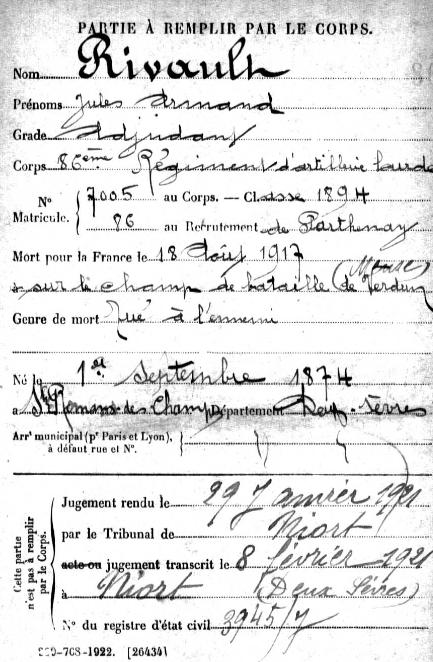 PARTIE À REMPLIR PAR LE CORPS.
Nom Rivault
Prénoms Jules Armand
Grade Adjudant
Corps 86ème Régiment d'artillerie lourde
N° Matricule. 7005 au Corps. — Classe 1894
86 au Recrutement de Parthenay
Mort pour la France le 18 Août 1917
sur le champ de bataille (de Verdun (Meuse)
Genre de mort Tué à l'ennemi
Né le 1er Septembre 1874
a St Romans-des-Champs Département Deux-Sèvres
Arrt municipal (pr Paris et Lyon),
à défaut rue et N°.
Cette partie n'est pas à remplir par le Corps.
Jugement rendu le 29 Janvier 1921
par le Tribunal de Niort
acte ou jugement transcrit le 8 février 1921
à Niort (Deux Sèvres)
N° du registre d'état civil 3945/7
-708-1922. [26434]